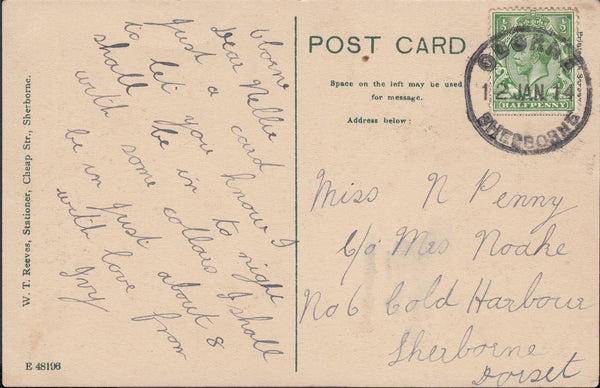 Oborne
Dear Nellie
Just a card
to let you know I
shall be in to night
with some collars I shall
be in just about 8
with love from
Ivy
POST CARD
Space on the left may be used
for message.
Address below:
OBORNE
12 JAN 14
SHERBORNE
HALFPENNY
Miss N Penny
C/o Mrs Noake
No 6 Cold Harbour
Sherborne
Dorset
W. T. Reeves, Stationer, Cheap Str., Sherborne.
E 48196